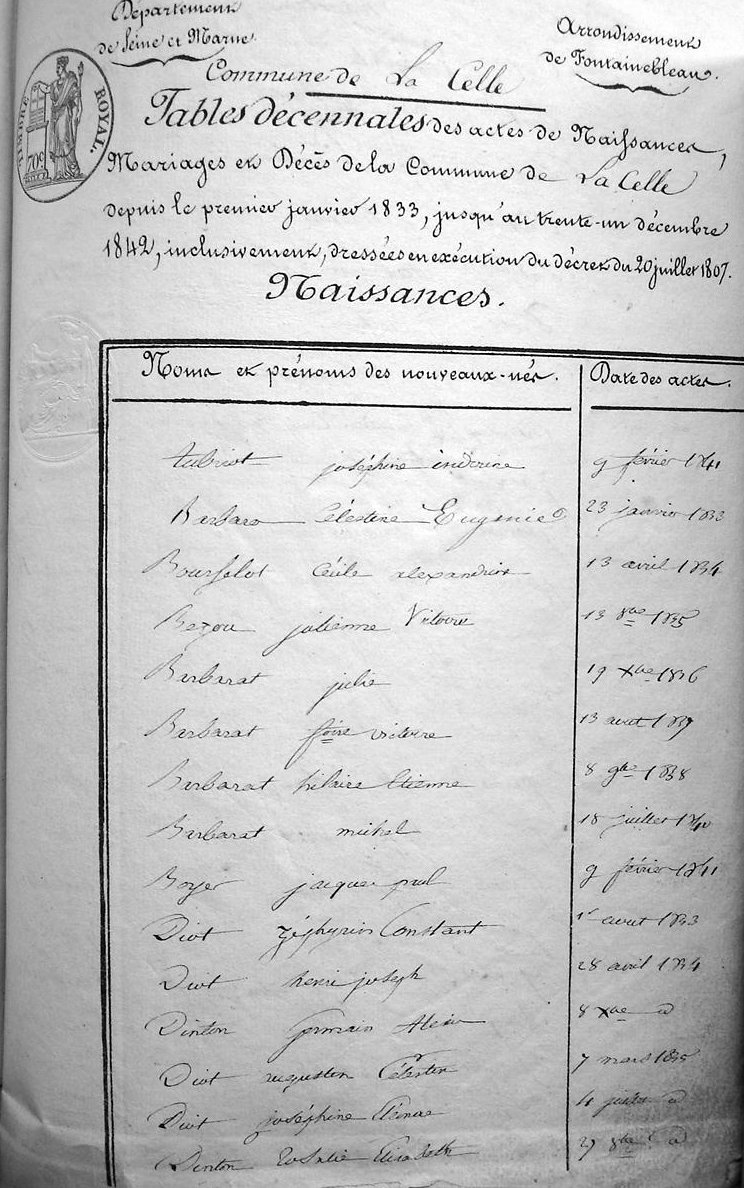 Département
de Seine et Marne
Arrondissement
de Fontainebleau.
Commune de La Celle
TIMBRE ROYAL.
70c
Tables décennales des actes de Naissances,
Mariages et Décès de la Commune de La Celle
depuis le premier janvier 1833, jusqu'au trente-un décembre
1842, inclusivement, dressées en exécution du décret du 20 juillet 1807.
Naissances.
Noms et prénoms des nouveaux-nés. Date des actes.
Aubriot joséphine 9 février 1841
Barbaro Célestine Eugenie 23 janvier 1833
Boursselot Cécile alexandrine 13 avril 1834
Bezou julienne Victoire 13 8bre 1835
Barbarat julie 19 Xbre 1836
Barbarat victoire 13 aout 1837
Barbarat hilaire Etienne 8 9bre 1838
Barbarat michel 18 juillet 1840
Boyer jacques paul 9 février 1841
Diot zéphyrin Constant 1er aout 1833
Diot henri joseph 28 avril 1834
Dinton Germain 8 Xbre d
Diot augustin Célestin 7 mars 1835
Diot joséphine 4 juillet d
Dinton Rosalie Elisabeth 27 8bre d